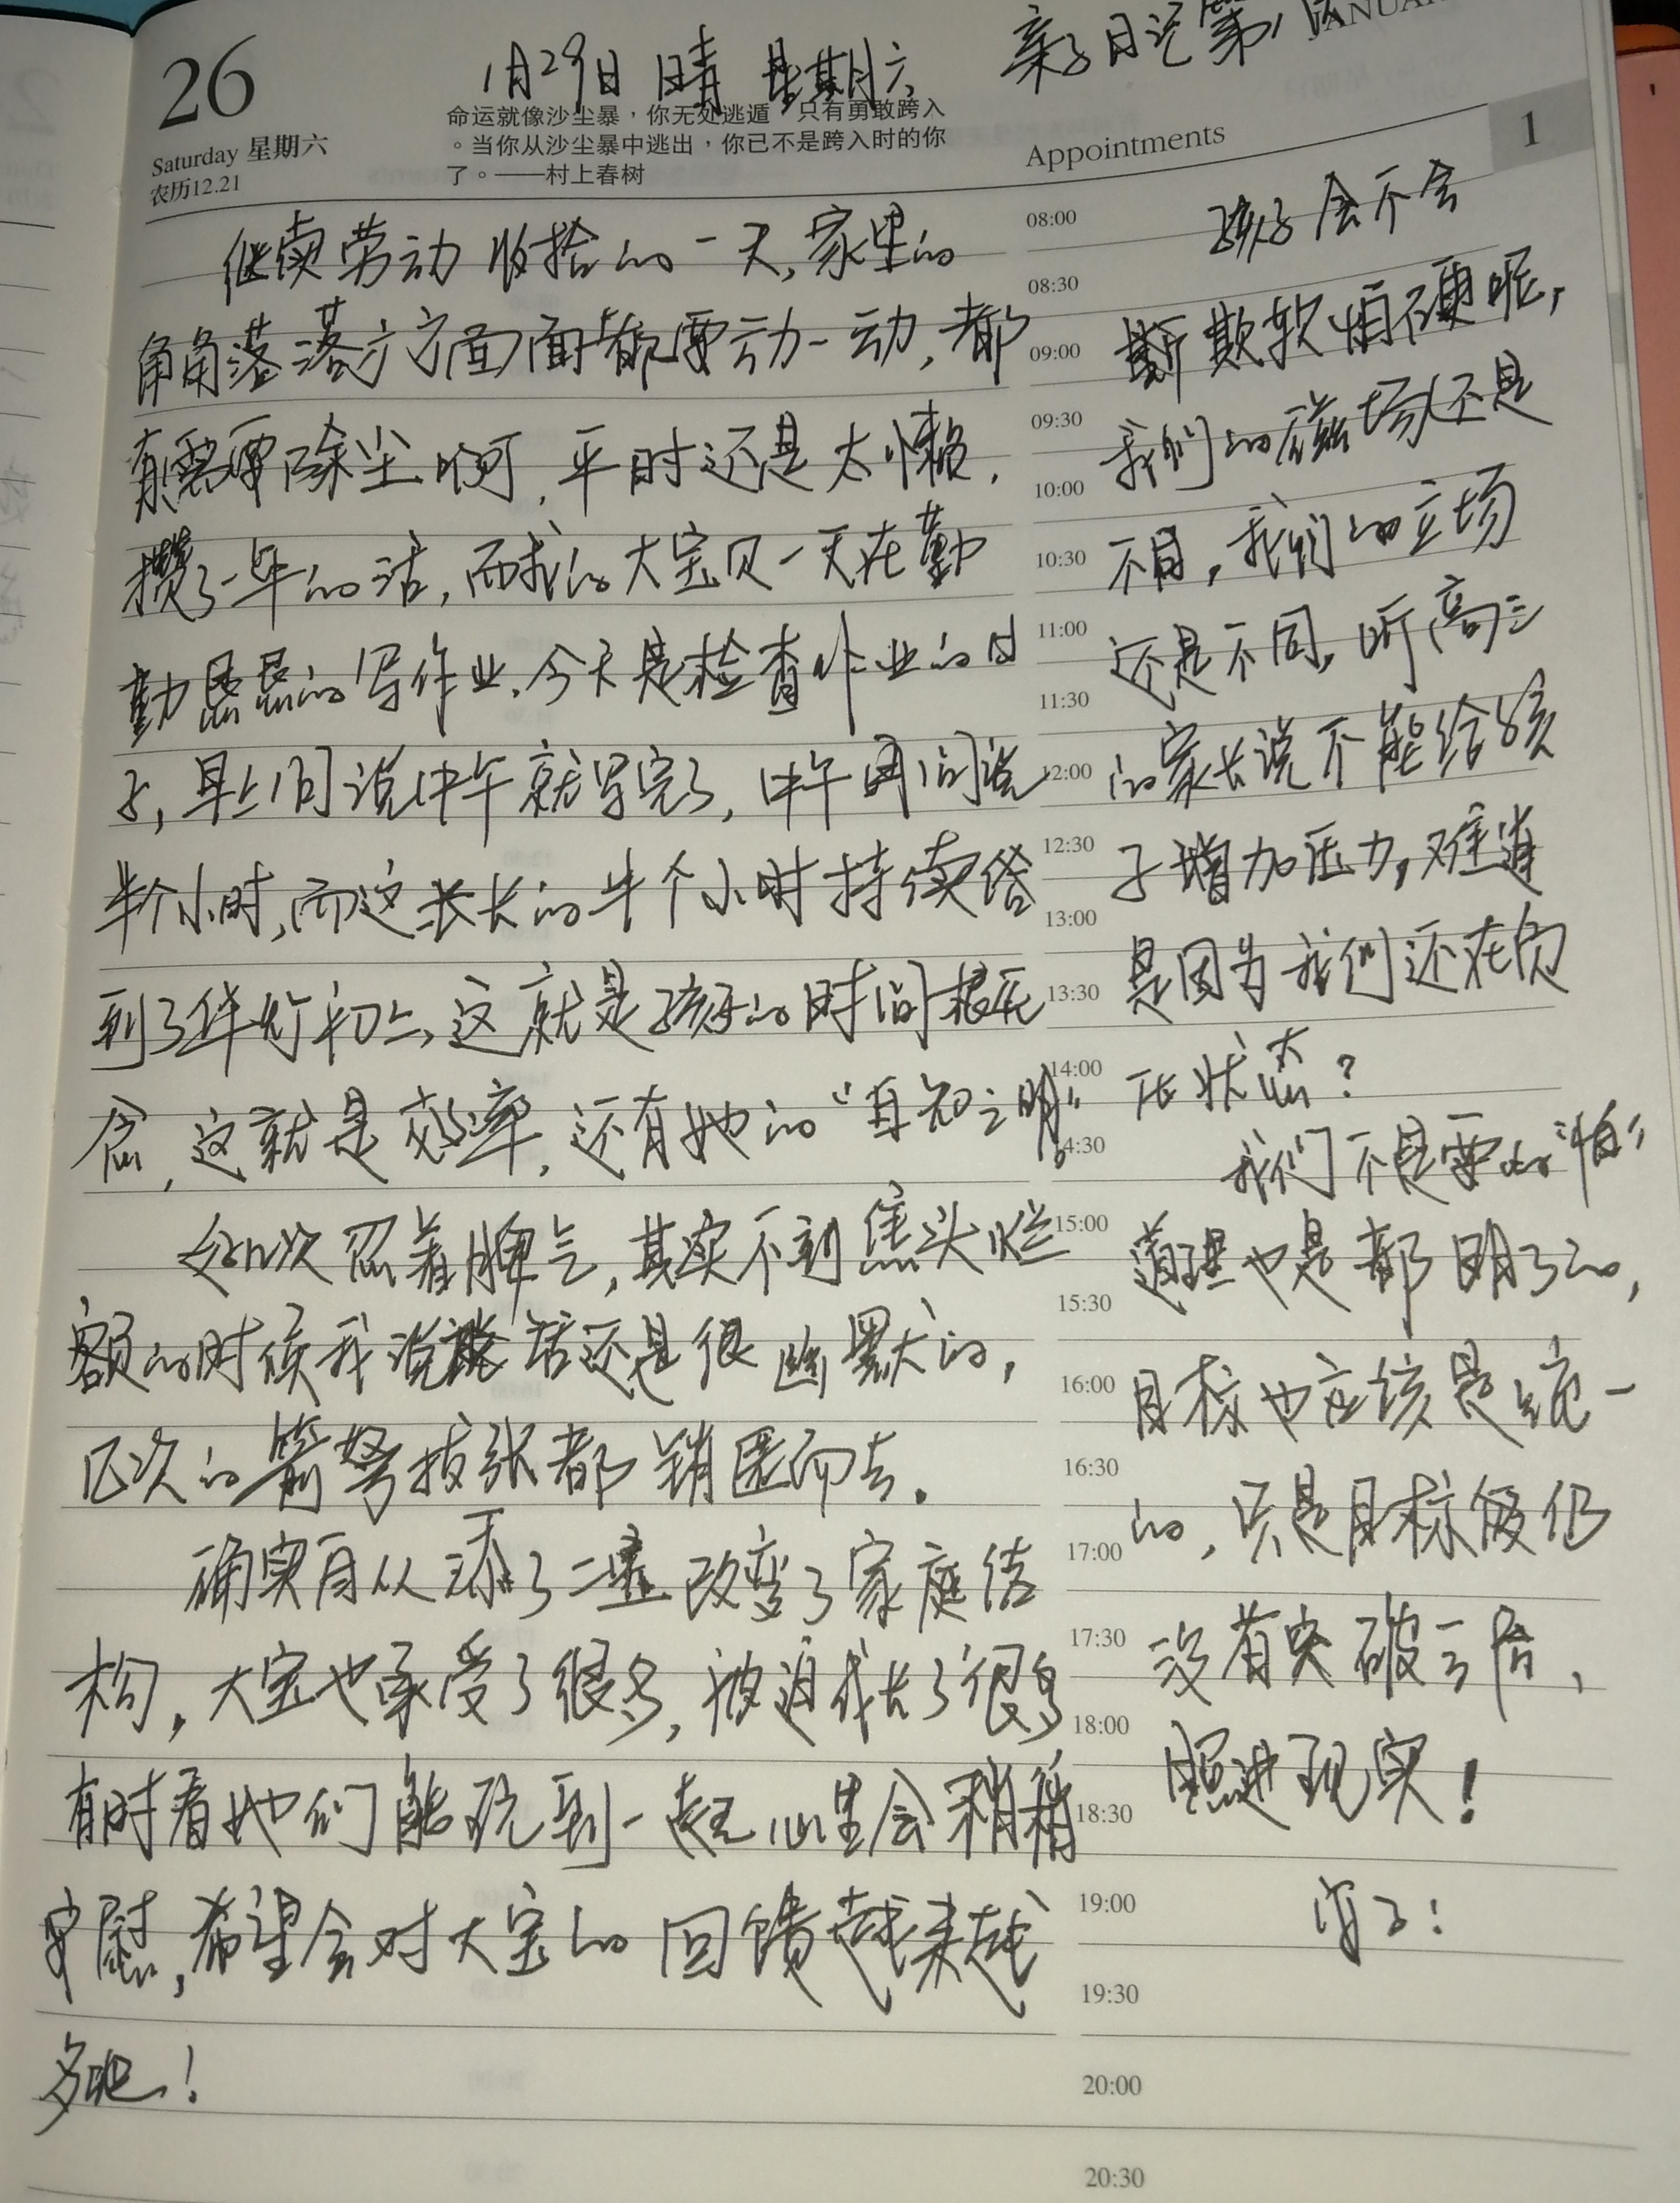 26
Saturday 星期六
农历12.21
1月29日 晴 星期六 亲子日记第1
JANUAR
命运就像沙尘暴，你无处逃遁，只有勇敢跨入
。当你从沙尘暴中逃出，你已不是跨入时的你
了。——村上春树
Appointments
1
继续劳动收拾的一天,家里的
角角落落方方面面都要动一动,都
有需要除尘啊,平时还是太懒,
攒了一年的活,而我的大宝贝一天在勤
勤恳恳的写作业.今天是检查作业的日
子,早上问说中午就写完了,中午再问说
半个小时,而这长长的半个小时持续
到了华灯初上,这就是孩子的时间概
念,这就是效率,还有她的“自知之明”
几次忍着脾气,其实不到焦头烂
额的时候我说话还是很幽默的,
几次的箭弩拔张都销匿而去.
确实自从添了二宝改变了家庭结
构,大宝也承受了很多,被迫成长了很多
有时看她们能玩到一起心里会稍稍
安慰,希望会对大宝的回馈越来越
多吧!
08:00
08:30
09:00
09:30
10:00
10:30
11:00
11:30
12:00
12:30
13:00
13:30
14:00
14:30
15:00
15:30
16:00
16:30
17:00
17:30
18:00
18:30
19:00
19:30
20:00
20:30
孩子会不会
欺软怕硬呢,
我们的磁场还是
不同,我们的立场
还是不同,听高三
的家长说不能给孩
子增加压力,难道
是因为我们还在负
压状态?
我们不是要的“怕”
道理也是都明了的,
目标也应该是统一
的,只是目标仅仅
没有突破云层、
照进现实!